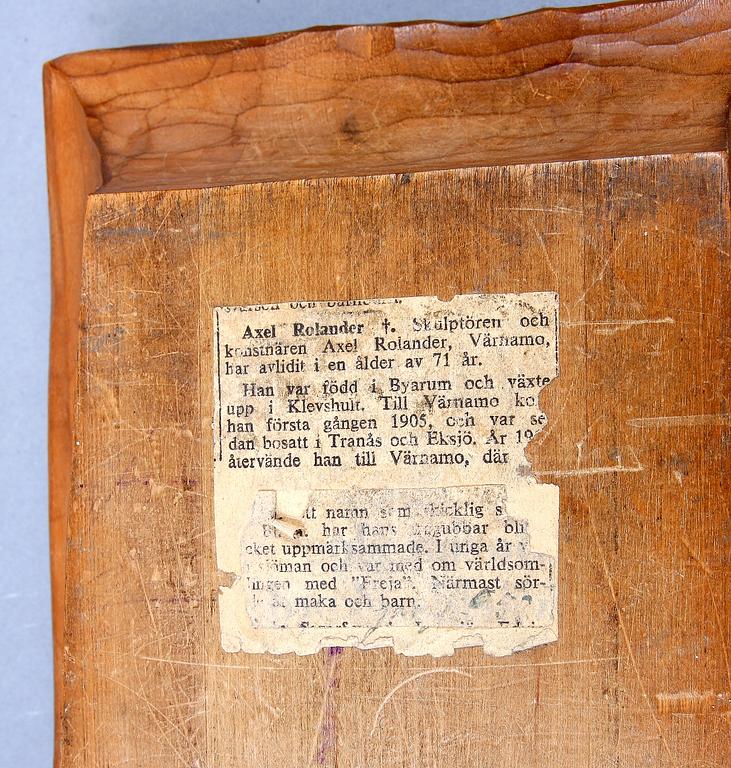 och
Axel Rolander †. Skulptören och
konstnären Axel Rolander, Värnamo,
har avlidit i en ålder av 71 år.
Han var född i Byarum och växte
upp i Klevshult. Till Värnamo ko
han första gången 1905, och var se
dan bosatt i Tranås och Eksjö. År 19
återvände han till Värnamo, där
tt namn som skicklig s
har hans gubbar bli
cket uppmärksammade. I unga år v
sjöman och var med om världsom-
lingen med "Freja". Närmast sör-
maka och barn.